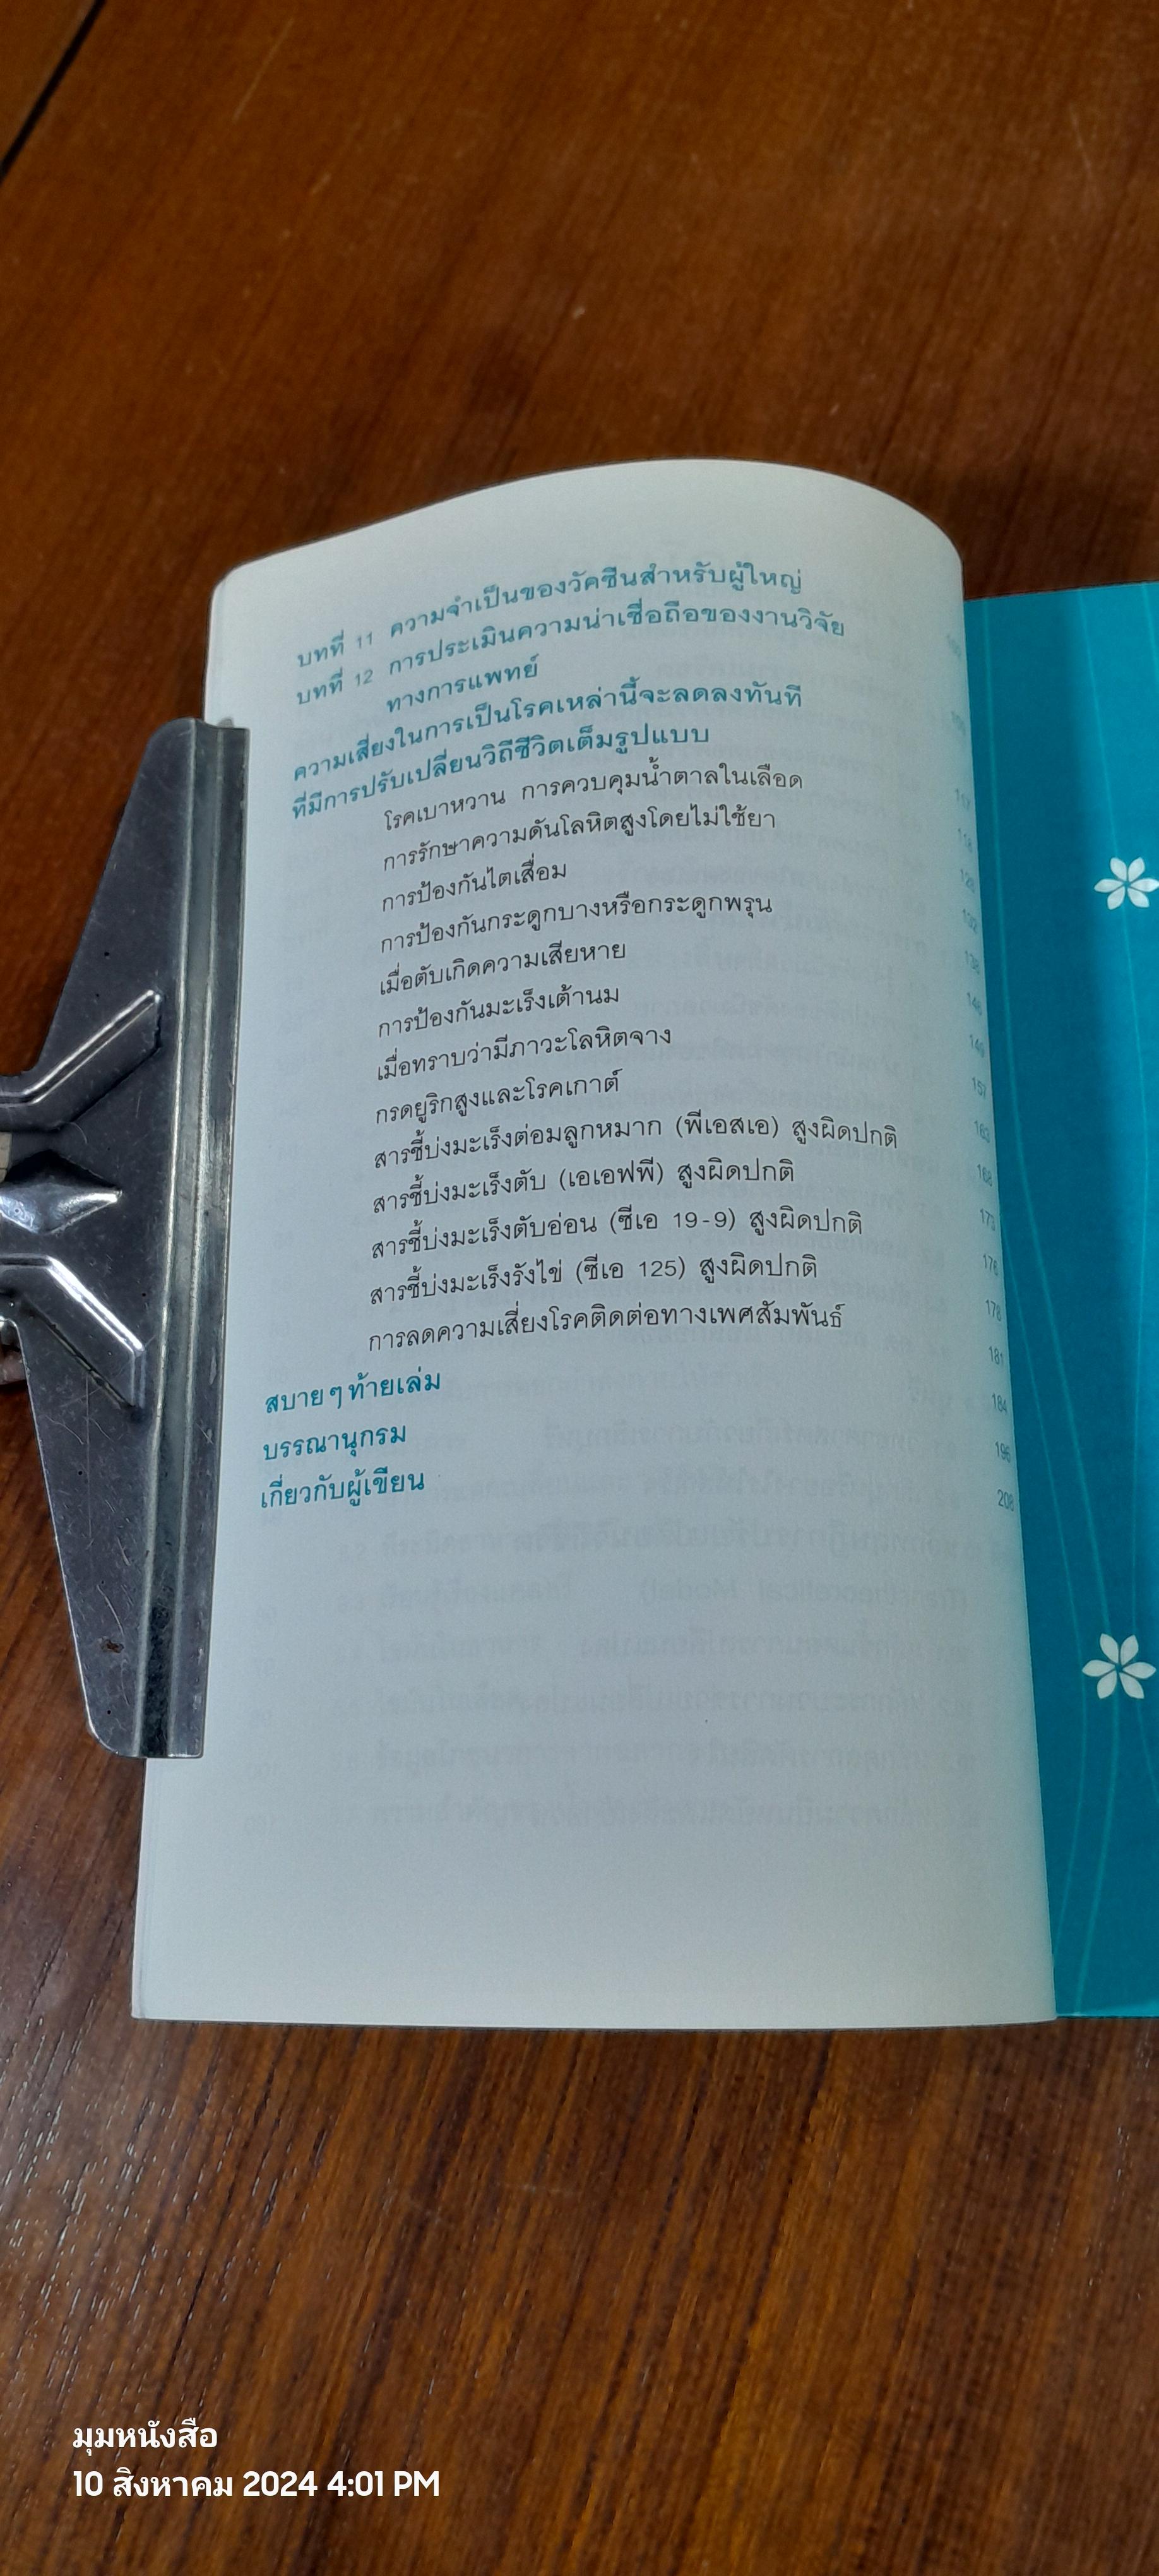 บทที่ 11 ความจำเป็นของวัคซีนสำหรับผู้ใหญ่
บทที่ 12 การประเมินความน่าเชื่อถือของงานวิจัย
ทางการแพทย์
ความเสี่ยงในการเป็นโรคเหล่านี้จะลดลงทันที
ที่มีการปรับเปลี่ยนวิถีชีวิตเต็มรูปแบบ
โรคเบาหวาน การควบคุมน้ำตาลในเลือด
การรักษาความดันโลหิตสูงโดยไม่ใช้ยา
การป้องกันไตเสื่อม
การป้องกันกระดูกบางหรือกระดูกพรุน
เมื่อตับเกิดความเสียหาย
การป้องกันมะเร็งเต้านม
เมื่อทราบว่ามีภาวะโลหิตจาง
กรดยูริกสูงและโรคเกาต์
สารชี้บ่งมะเร็งต่อมลูกหมาก (พีเอสเอ) สูงผิดปกติ
สารชี้บ่งมะเร็งตับ (เอเอฟพี) สูงผิดปกติ
สารชี้บ่งมะเร็งตับอ่อน (ซีเอ 19-9) สูงผิดปกติ
สารชี้บ่งมะเร็งรังไข่ (ซีเอ 125) สูงผิดปกติ
การลดความเสี่ยงโรคติดต่อทางเพศสัมพันธ์ 181
สบายๆ ท้ายเล่ม 184
บรรณานุกรม 196
เกี่ยวกับผู้เขียน 208
มุมหนังสือ
10 สิงหาคม 2024 4:01 PM